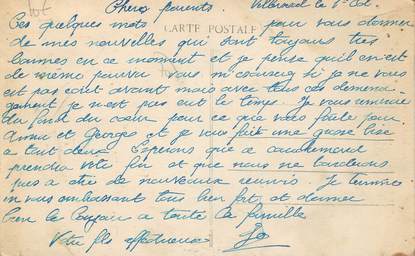 Chers parents. Villerval le 1er Oct.
Ces quelques mots pour vous donner
CARTE POSTALE
de mes nouvelles qui sont toujours très
bonnes en ce moment et je pense qu'il en est
de même pour vous m'excuserez si je ne vous
est pas avant mais avec tous ces demena
gement je n'est pas eut le temps. Je vous remercie
du fond du cœur pour ce que vous faite pour
Anna et Georges et je vous fait une grosse bise
a tout deux. Esperons que ce
prendra vite fin et que nous ne tarderons
pas a etre de nouveaux reunis. Je termine
in vous embrassant tous bien fort et donner
bien le bonjour a toute la famille
Votre fils affectueux